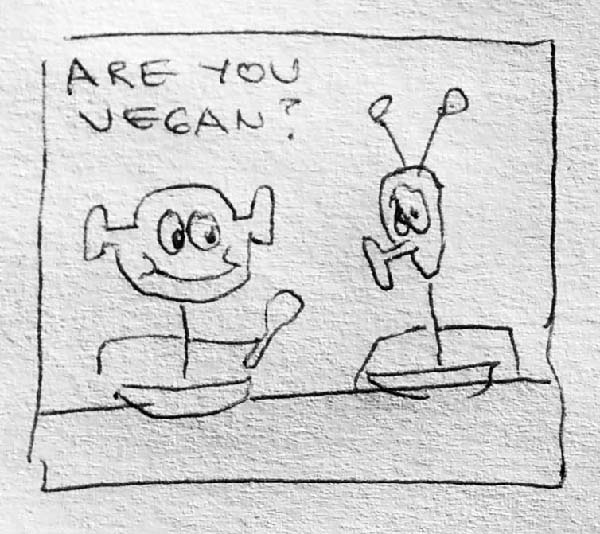 ARE YOU
VEGAN?